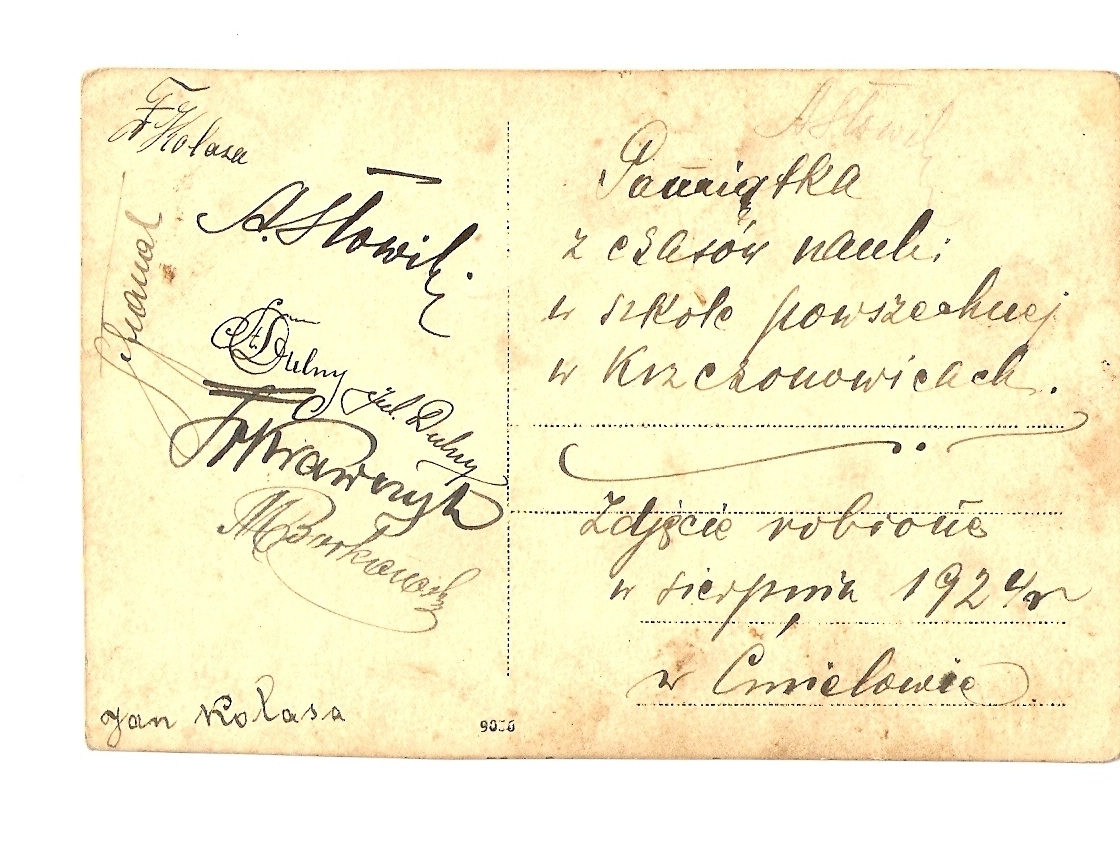 F Kołasa
A. Słowik
St. Dulny
Jul. Dulny
Fr Krawczyk
M Borkowski
Jan Kołasa
9030
A Słowik
Pamiątka
z czasów nauki
w szkole powszechnej
w Krzczonowicach.
Zdjęcie robione
w sierpniu 1924 r
w Ćmielowie